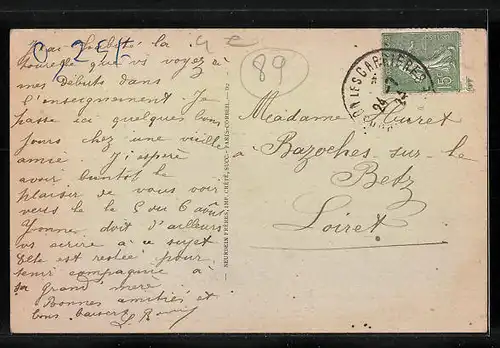 J'ai habité la
tourelle que vs voyez à
mes débuts dans
l'enseignement. Je
passe ici quelques bons
jours chez une vieille
amie. J'espère
avoir bientôt le
plaisir de vous voir
vers le 5 ou 6 août
Yvonne doit d'ailleurs
vs écrire à ce sujet
Elle est restée pour
tenir compagnie à
sa grand'mère
Bonnes amitiés et
bons baisers
0,25
4 e
89
NEURDEIN FRÈRES, IMP. CRÉTÉ, SUCC. - PARIS-CORBEIL
LES CARRIERES
24
15
Madame
à
Bazoches-sur-le
Betz
Loiret